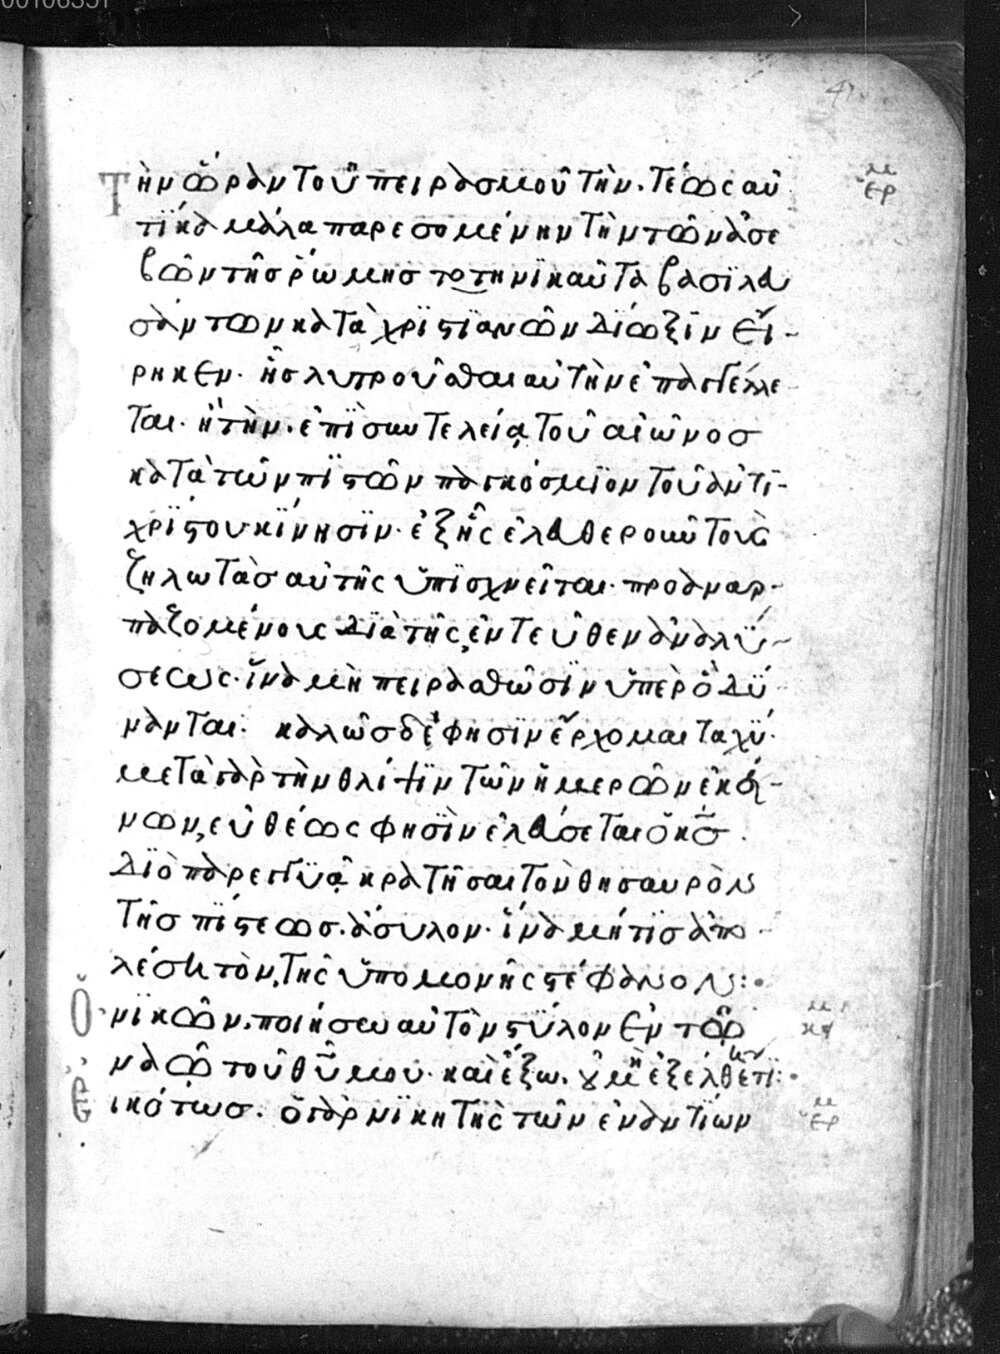 00106351
47
Τὴν ὥραν τοῦ πειρασμοῦ τὴν. τέως αὐ
τίκα μάλα παρεσομένην τὴν τῶν ἀσε
βῶν τῆς ῥώμης τοτηνϊκαῦτα βασϊλευ
σάντων κατὰ χρϊστϊανῶν δϊωξϊν εἴ-
ρηκεν. ἧς λυτροῦσθαι αὐτὴν ἐπαγγέλλε
ται. ἢ τὴν. ἐπῒ συντελεία τοῦ αἰῶνος
κατὰ τῶν πϊστῶν παγκόσμϊον τοῦ ἀντϊ-
χρΐστου κΐνησϊν. ἐξ ἧς ἐλευθεροῦν τοὺς
ζηλωτὰς αὐτῆς ὑπϊσχνεῖται. προαναρ-
παζομένους δϊὰ τῆς, ἐντεῦθεν ἀναλΰ-
σεως. ἵνα μὴ πειρασθῶσϊν ὑπὲρ ὃ δΰ
νανται. καλῶς δέ φησϊν ἔρχομαι ταχΰ.
μετὰ γὰρ τὴν θλίψϊν τῶν ἡμερῶν ἐκεί-
νων, εὐθέως φησῒν ἐλεύσεται ὁ κς.
Δϊὸ παρεγγϋᾶ κρατῆσαι τὸν θησαυρὸν
τῆς πΐστεως. ἄσυλον. ἵνα μήτϊς ἀπο-
λέση τὸν, τῆς ὑπομονῆς στέφανον:
μ
ἙΡ
Ὁ νϊκῶν. ποιήσω αὐτὸν στΰλον ἐν τῶ
ναῶ τοῦ θυ μου. καὶ ἔξω. οὐ μὴ ἐξέλθη ἔτϊ:
μ
κγ
Εἰκότως. ὁ γὰρ νϊκητὴς τῶν ἐναντϊων
μ
ἙΡ